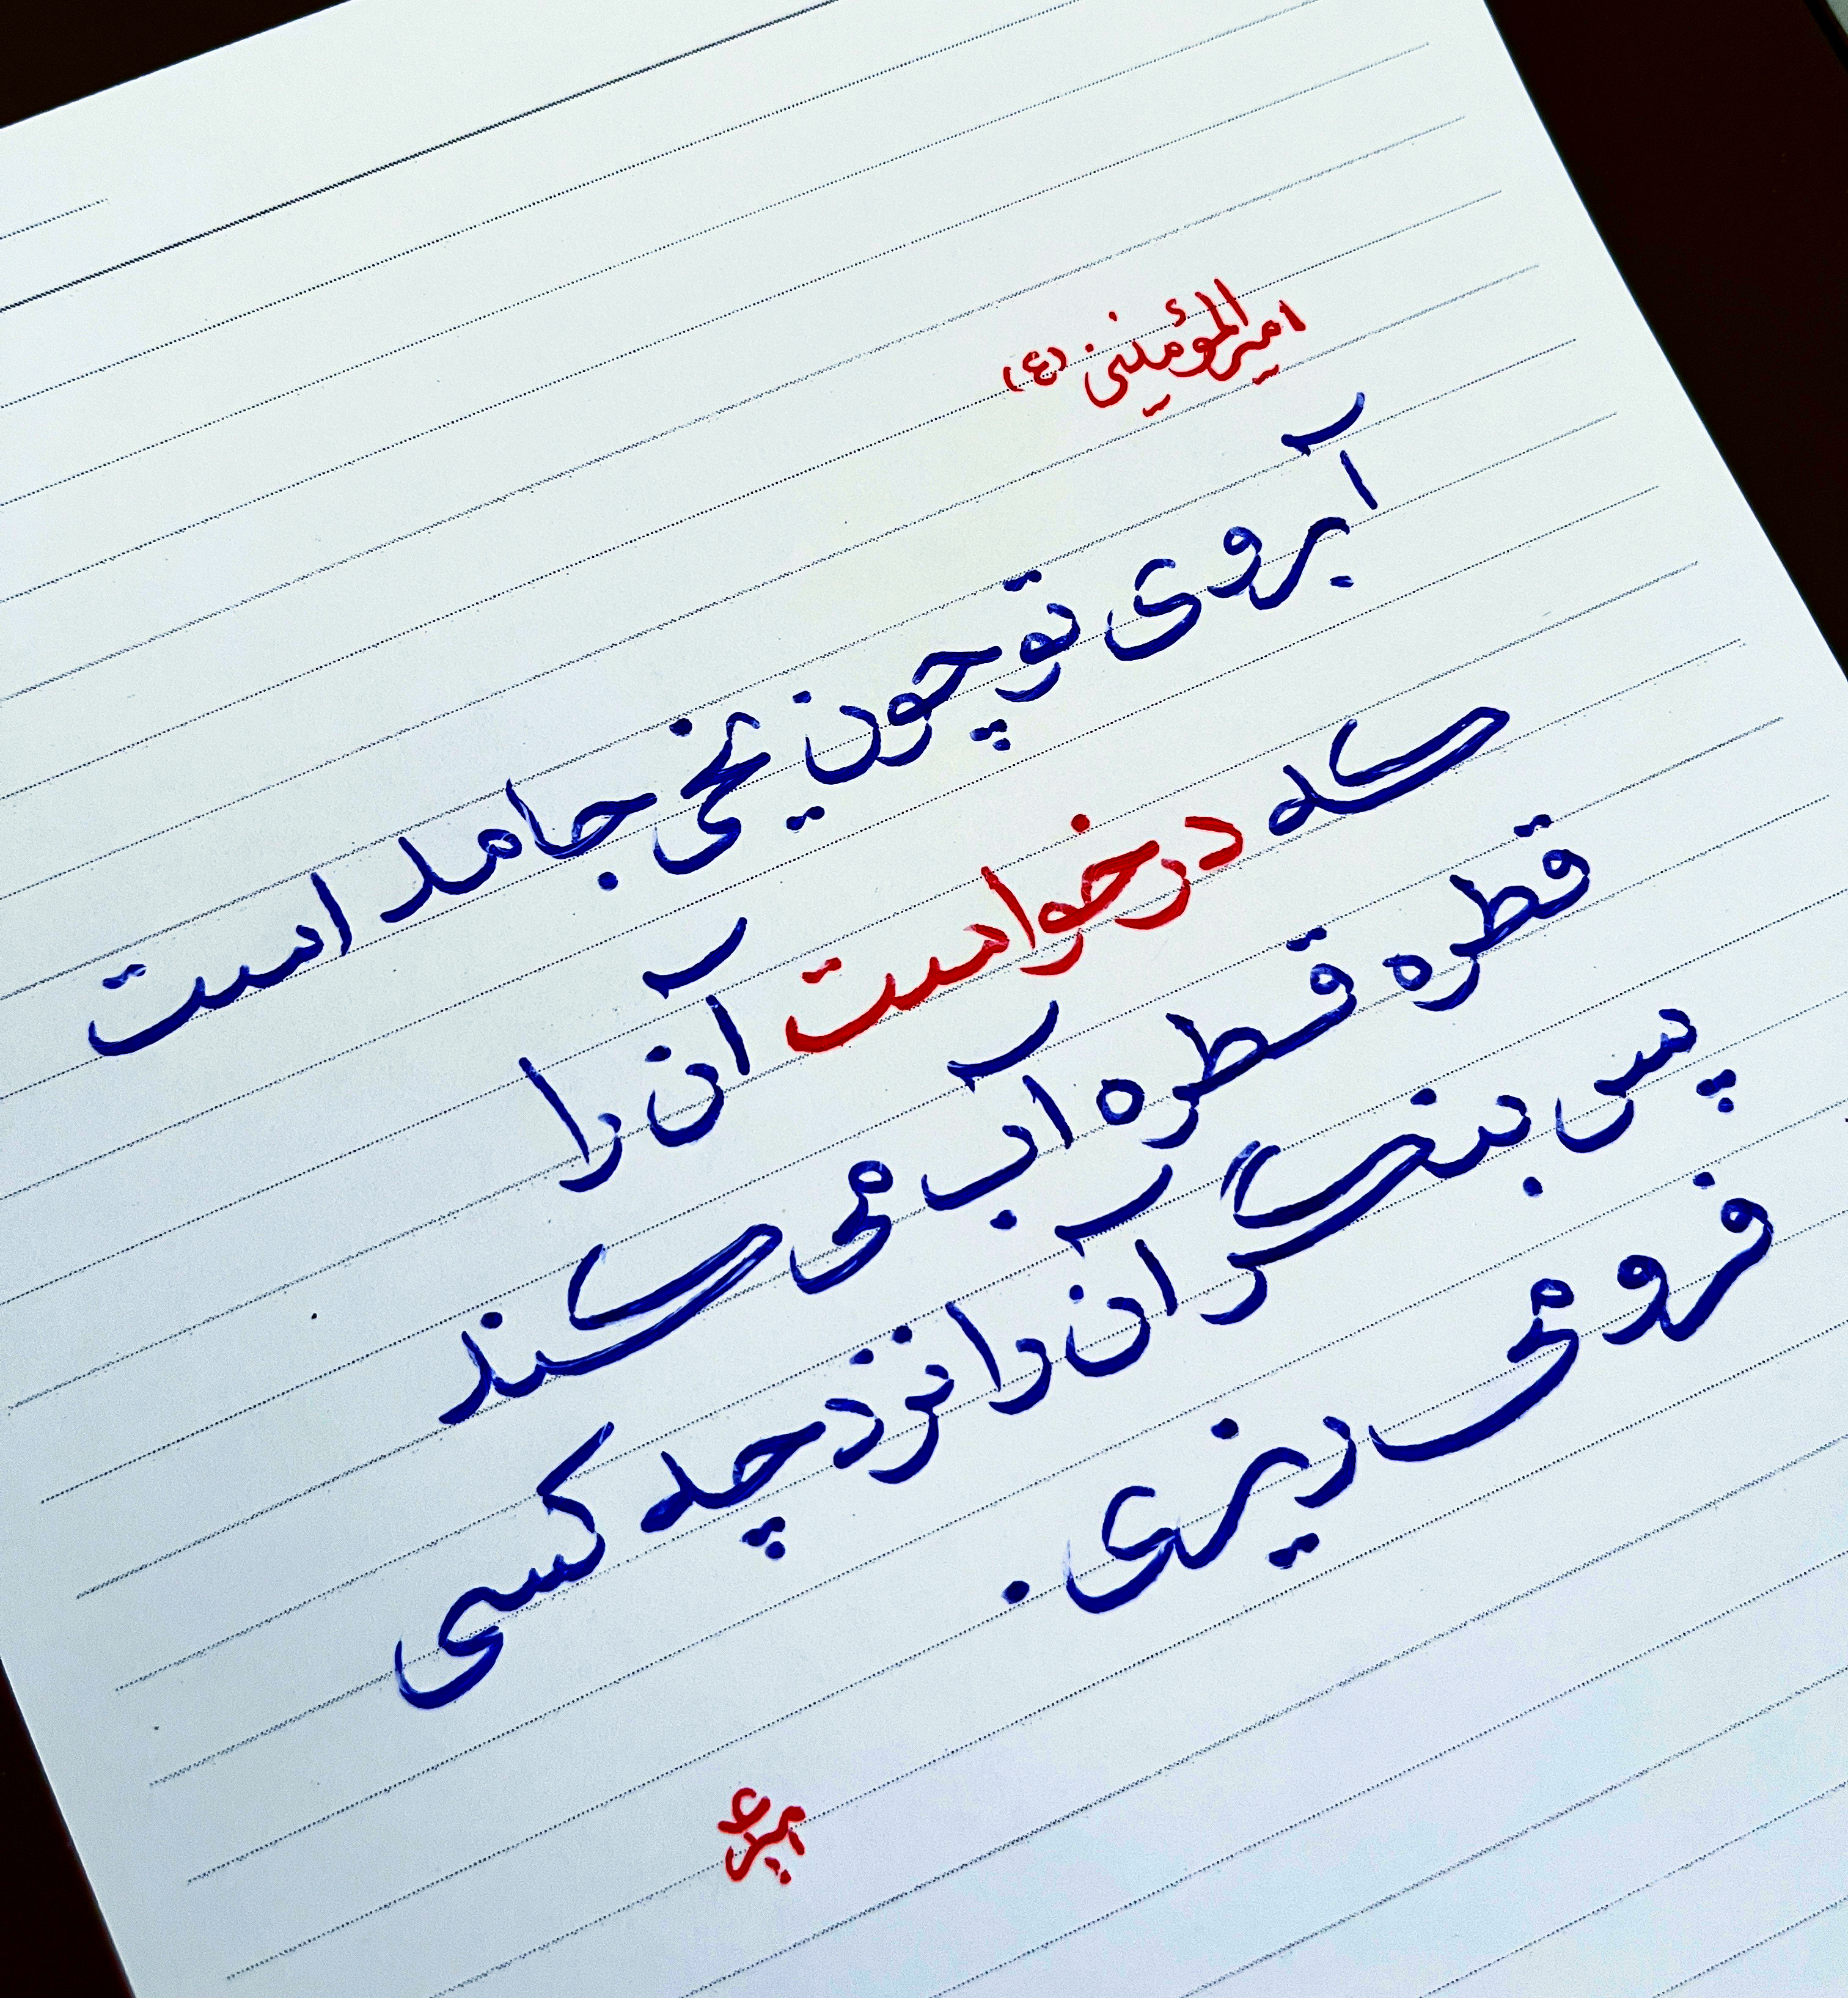 امیرالمؤمنین (ع)
آبروی تو چون یخی جامد است
که درخواست آن را
قطره قطره آب می کند
پس بنگر آن را نزد چه کسی
فرو می ریزی.